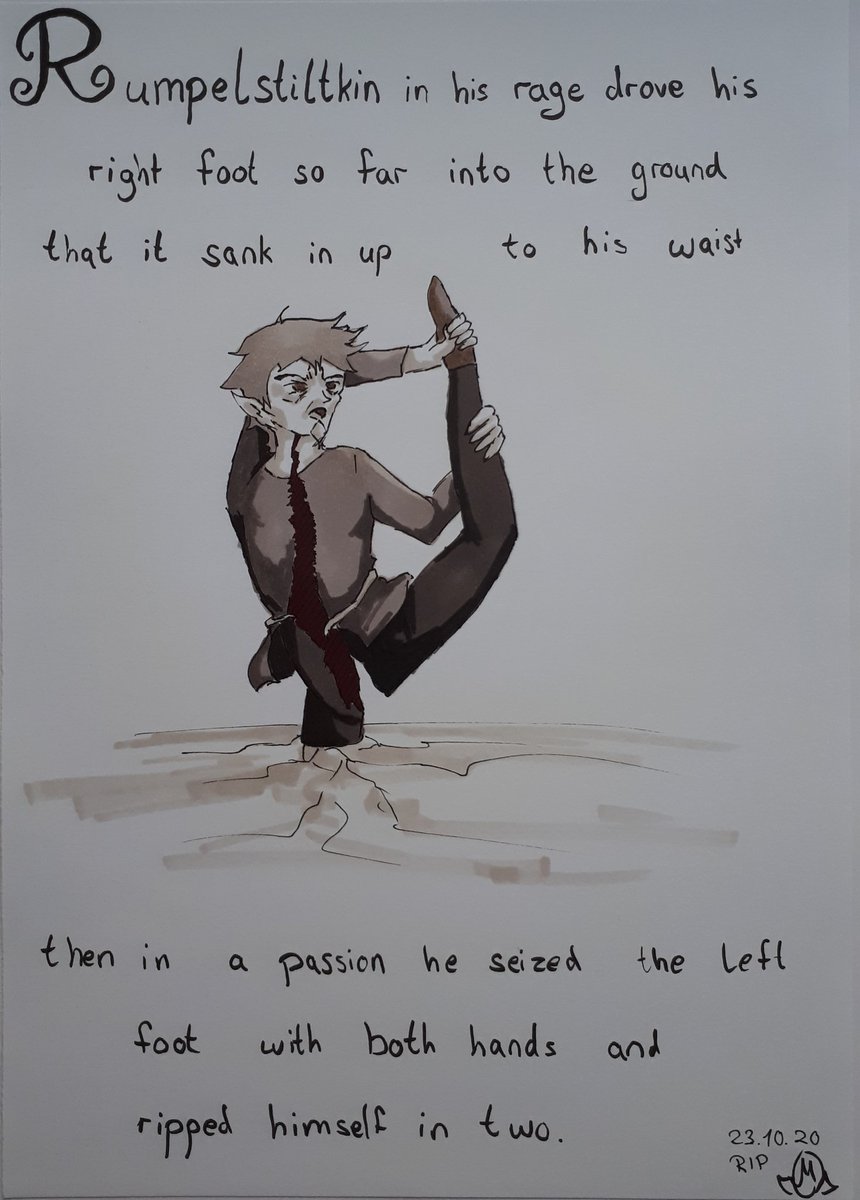 Rumpelstiltkin in his rage drove his
right foot so far into the ground
that it sank in up to his waist
then in a passion he seized the left
foot with both hands and
ripped himself in two.
23.10.20
RIP
M